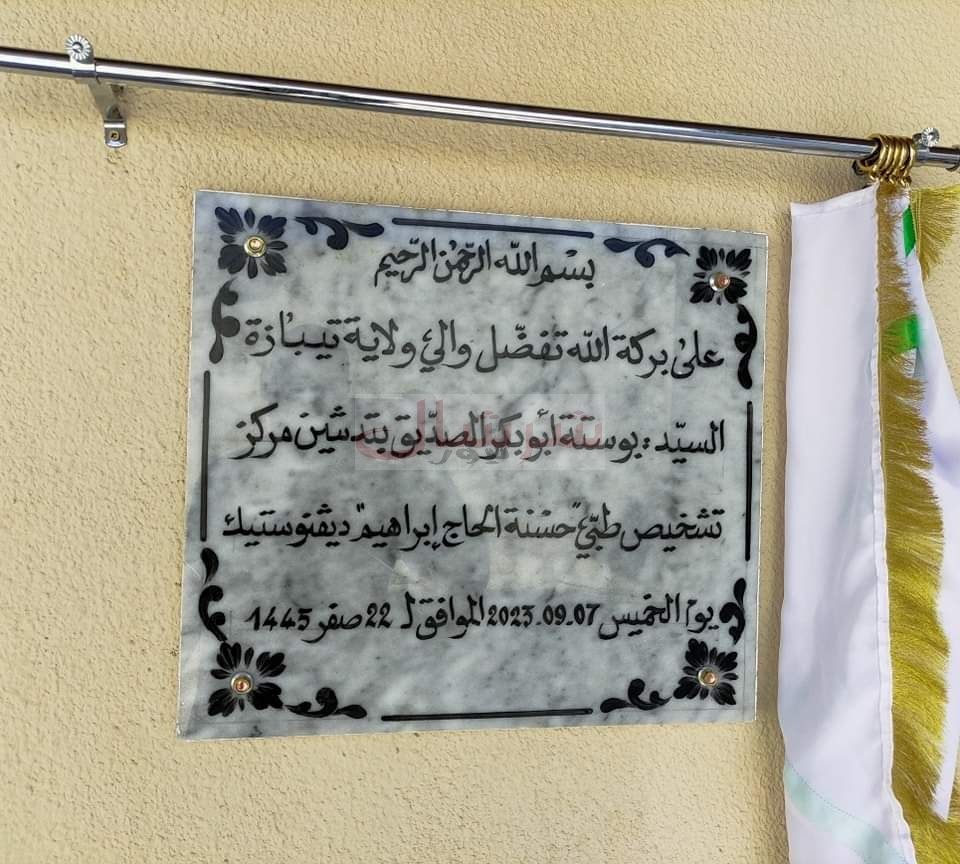 بسم الله الرّحمٰن الرّحيم
على بركة الله تفضّل والي ولاية تيبازة
السيّد : بوستة أبو بكر الصدّيق بتدشين مركز
تشخيص طبّي "حسنة الحاج إبراهيم" ديڤنوستيك
يوم الخميس 2023.09.07 الموافق لـ 22 صفر 1445